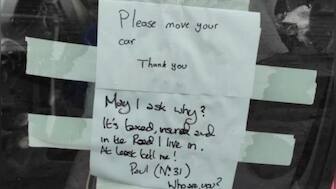 Please move your
car
Thank you
May I ask why?
It's taxed, insured and
in the Road I live in.
At least tell me!
Paul (No 31)
Who are you?